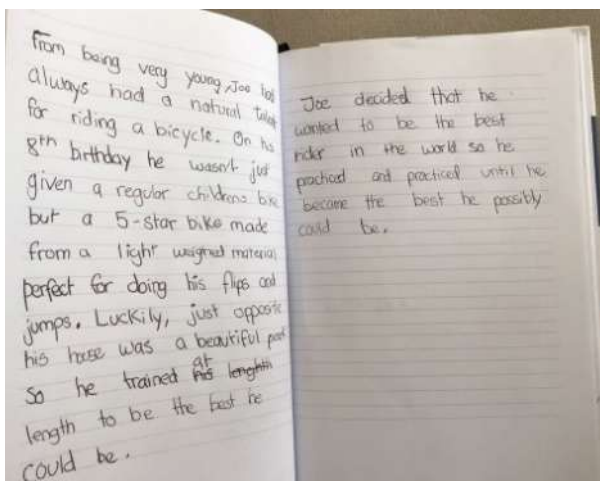 From being very young, Joe had
always had a natural talent
for riding a bicycle. On his
8th birthday he wasn't just
given a regular childrens bike
but a 5-star bike made
from a light weighed material
perfect for doing his flips and
jumps. Luckily, just opposite
his house was a beautiful park
so he trained at his lenghth
length to be the best he
could be.
Joe decided that he
wanted to be the best
rider in the world so he
practiced and practiced until he
became the best he possibly
could be.